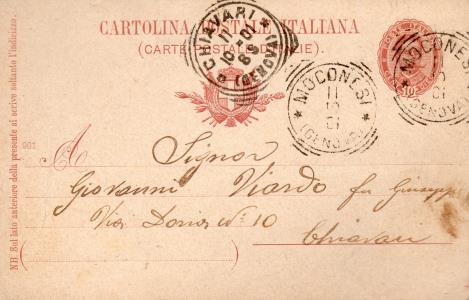 CARTOLINA POSTALE ITALIANA
(CARTE POSTALE D'ITALIE)
CHIAVARI
(GENOVA)
MOCONESI
11
10
01
(GENOVA)
MOCONESI
(GENOVA)
10
901
A
Signor
Giovanni Viardo fu Giuseppe
Via Doria No 10
Chiavari
NB. Sul lato anteriore della presente si scrive soltanto l'indirizzo.